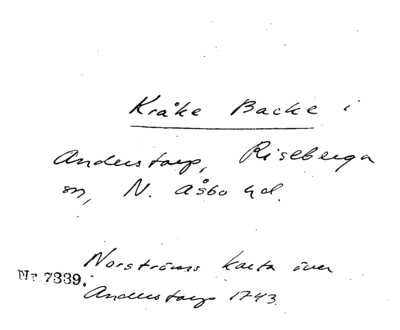 Kråke Backe i
Anderstorp, Riseberga
sn, N. Åsbo hd.
Norströms karta över
Nr 7339.
Anderstorp 1743